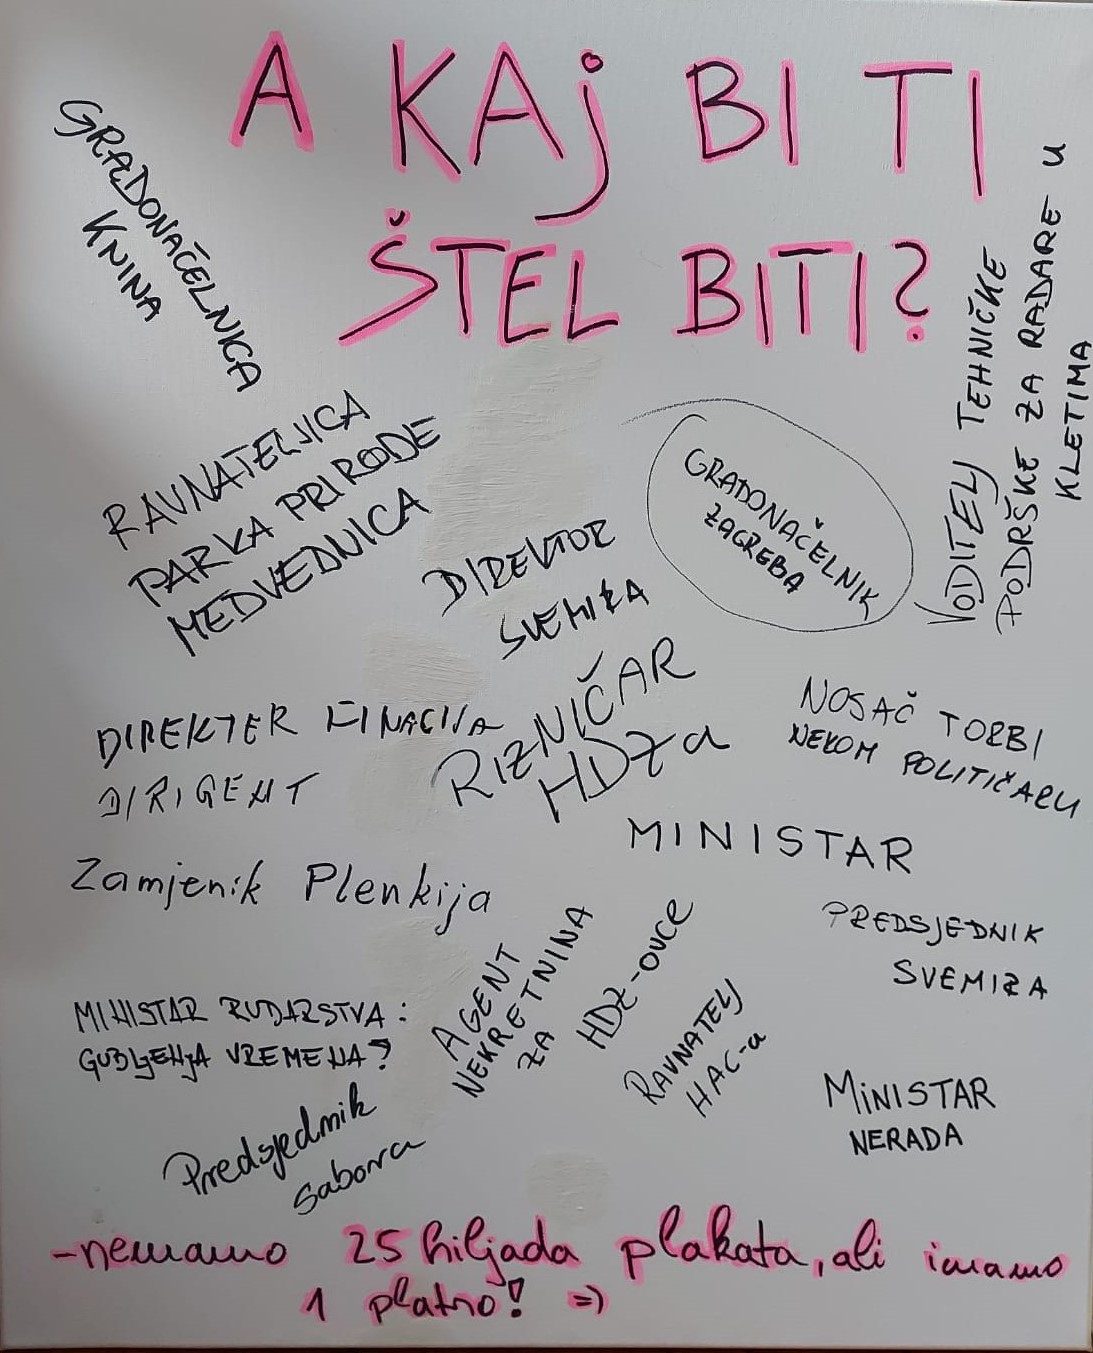 A KAj BI TI
ŠTEL BITI?
GRADONAČELNICA
KNINA
VODITELJ TEHNIČKE
PODRŠKE ZA RADARE U
KLETIMA
RAVNATELJICA
PARKA PRIRODE
MEDVEDNICA
GRADONAČELNIK
ZAGREBA
DIREKTOR
SVEMIRA
DIREKTER FINACIJA
DIRIGENT
RIZNIČAR
HDZa
NOSAČ TORBI
NEKOM POLITIČARU
MINISTAR
Zamjenik Plenkija
PREDSJEDNIK
SVEMIRA
AGENT
NEKRETNINA
ZA
HDZ-OVCE
MINISTAR RUDARSTVA:
GUBLJENJA VREMENA?
RAVNATELJ
HAC-a
MiNISTAR
NERADA
Predsjednik
sabora
-nemamo 25 hiljada plakata, ali imamo
1 platno! =)